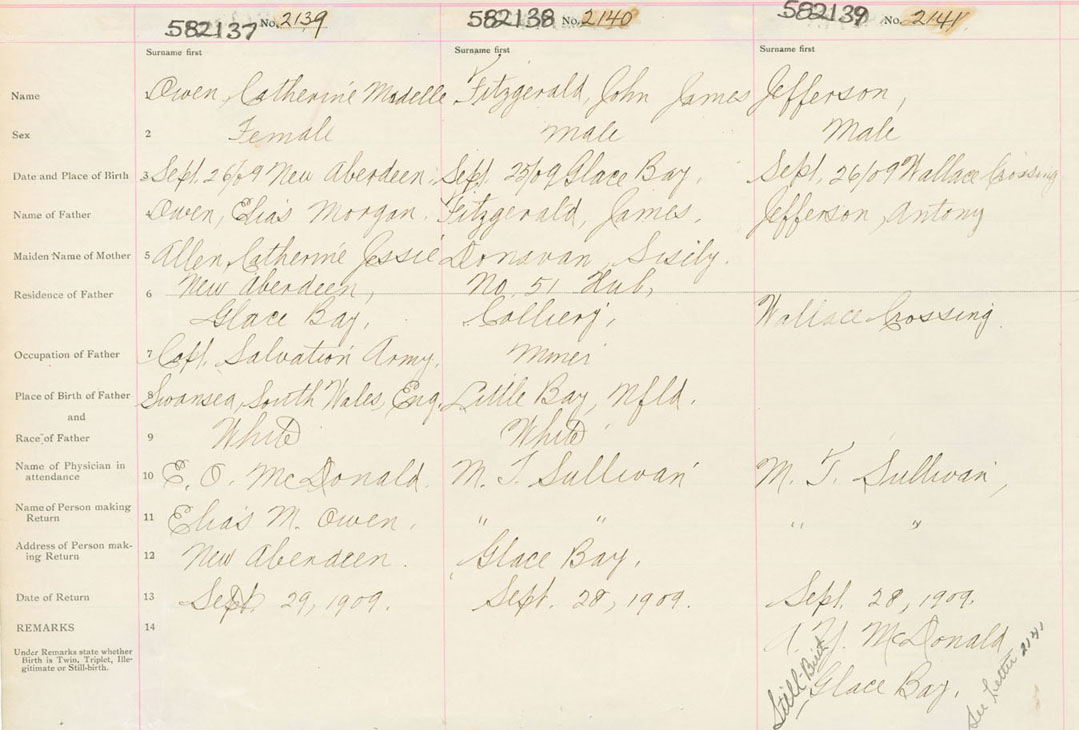 582137 No. 2139 582138 No. 2140 582139 No. 2141
Surname first Surname first Surname first
Name 1 Owen, Catherine Madelle Fitzgerald, John James Jefferson,
Sex 2 Female Male Male
Date and Place of Birth 3 Sept. 26/09 New Aberdeen. Sept. 25/09 Glace Bay. Sept. 26/09 Wallace Crossing
Name of Father Owen, Elias Morgan. Fitzgerald, James. Jefferson, Antony
Maiden Name of Mother 5 Allen, Catherine Jessie Donavan, Sisily.
Residence of Father 6 New Aberdeen, No. 51 Hub,
Glace Bay, Colliery, Wallace Crossing
Occupation of Father 7 Capt. Salvation Army. Miner
Place of Birth of Father 8 Swansea, South Wales, Eng. Little Bay, Nfld.
and
Race of Father 9 White White
Name of Physician in
attendance 10 E. O. McDonald. M. T. Sullivan M. T. Sullivan,
Name of Person making
Return 11 Elias M. Owen. " " " "
Address of Person mak-
ing Return 12 New Aberdeen. Glace Bay.
Date of Return 13 Sept 29, 1909. Sept. 28, 1909. Sept. 28, 1909.
REMARKS 14 McDonald
Under Remarks state whether
Birth is Twin, Triplet, Ille-
gitimate or Still-birth.
Glace Bay.
Still-Birth
See Letter 2141